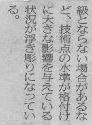 級とならない場合があるな
ど、技術点の水準が格付け
に大きな影響を与えている
状況が浮き彫りになってい
る。